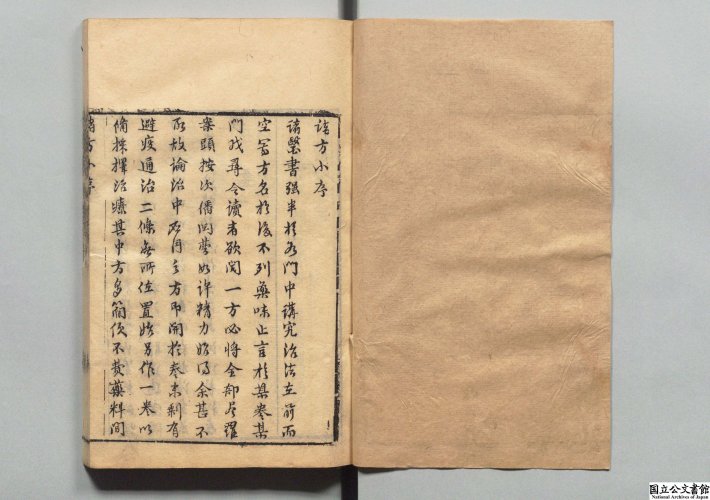 諸方小序
諸醫書强半於各門中講究治法在前而
空寫方名於後不列藥味止言於某卷某
門找尋令讀者欲閱一方必將全部尽羅
案頭按次僃閱費如許精力始得余甚不
取故論治中所用之方即開於卷末别有
避疫通治二條無所位置始另作一卷以
僃採擇治療其中方多簡便不費藥料間
諸方小序
国立公文書館
National Archives of Japan